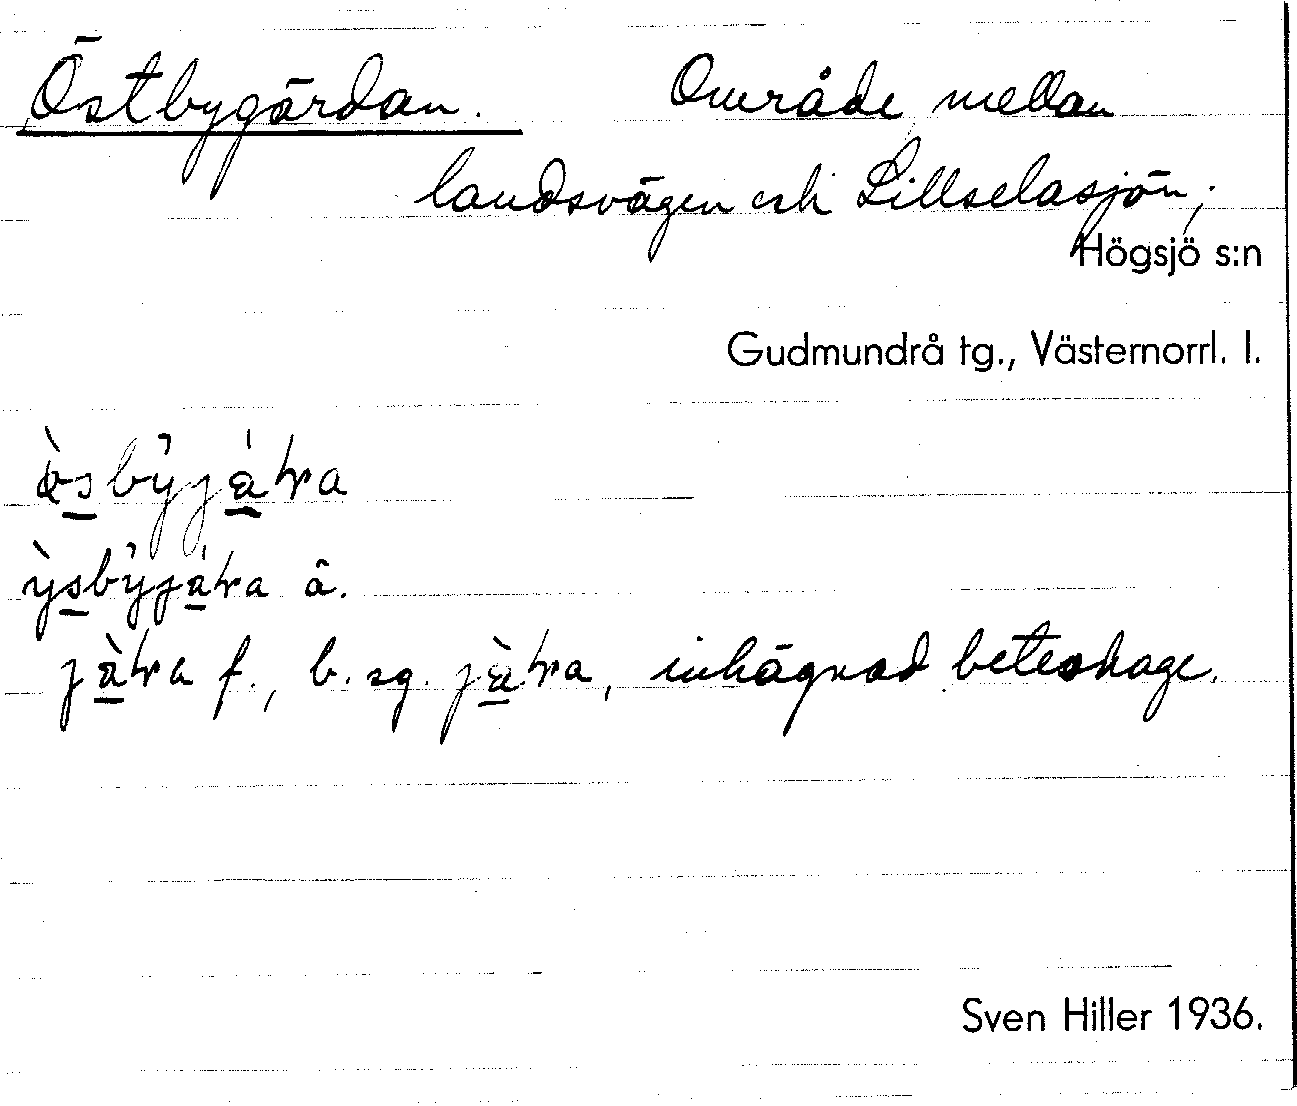 Östbygärdan. Område mellan
landsvägen och Lillselasjön,
Högsjö s:n
Gudmundrå tg., Västernorrl. l.
ä.
f., b. sg. inhägnad beteshage.
Sven Hiller 1936.